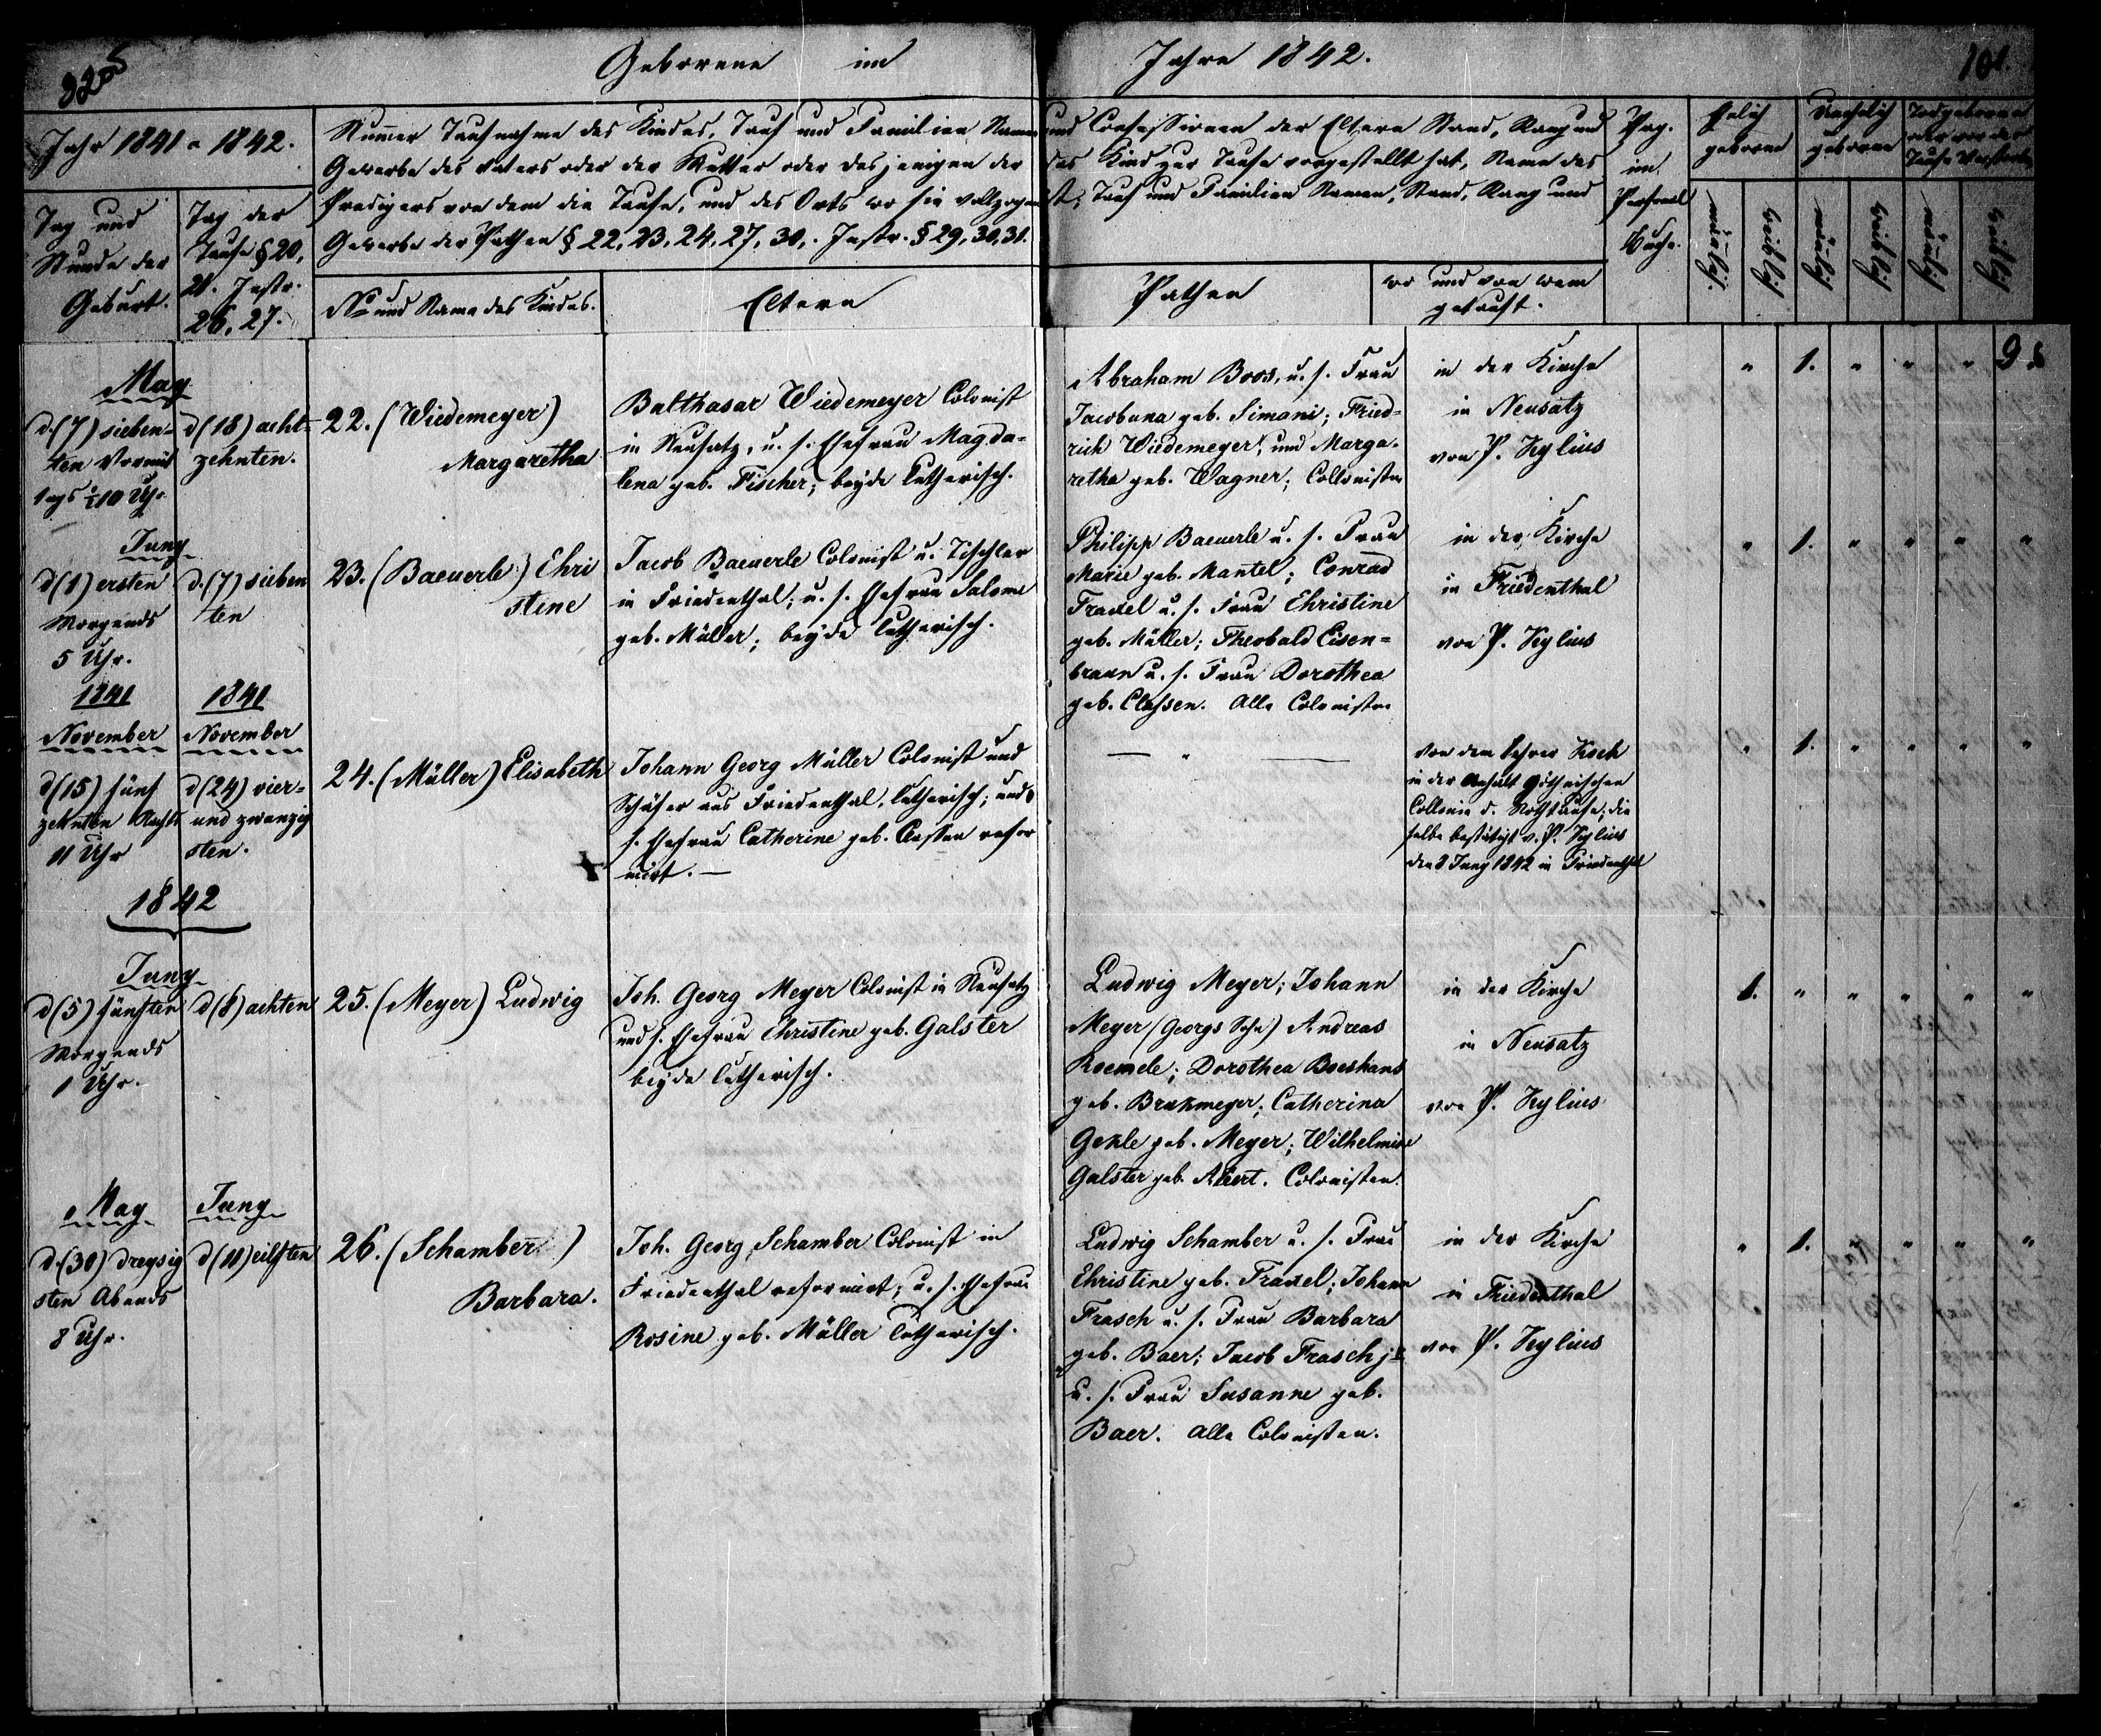 Geborene im Jahre 1842.
101.
Jahr 1841 u 1842.
Tag und
Stunde der
Geburt.
Tag der
Taufe § 20,
21. Instr.
26, 27.
Numer Taufnahme des Kindes, Tauf und Familien Namen und Confessionen der Eltern Stand, Rang und
Gewerbe des Vaters oder der Mutter oder desjenigen der das Kind zur Taufe vorgestellt hat, Name des
Predigers von dem die Taufe, und des Orts wo sie vollzogen ist, Tauf und Familien Namen, Stand, Rang und
Gewerbe der Pathen § 22, 23, 24, 27, 30,. Instr. § 29, 30, 31.
No und Name des Kindes.
Eltern
Pathen
wo und von wem
getauft.
Pag.
im
Personal
Buche.
Ehelich
geboren
Unehelich
geboren
Todgeborene
oder vor der
Taufe Verstorbene
mänlich
weiblich
mänlich
weiblich
mänlich
weiblich
May
d. (7) sieben-
ten Vormit
tags ½10 Uhr
d (18) acht-
zehnten.
22. (Wiedemeyer)
Margaretha
Balthasar Wiedemeyer Colonist
in Neusatz, u. s. Ehefrau Magda-
lena geb. Fischer; beyde lutherisch.
Abraham Boos, u. s. Frau
Jacobuna geb. Simani; Fried-
rich Wiedemeyer, und Marga-
retha geb. Wagner; Collonisten
in der Kirche
in Neusatz
von P. Kylius
" 1. " " "
Juny
d (1) ersten
Morgends
5 Uhr.
d. (7) sieben
ten
23. (Baeuerle) Chri
stine
Jacob Baeuerle Colonist u. Tischler
in Friedenthal; u. s. Ehefrau Salome
geb. Müller; beyde lutherisch.
Philipp Baeuerle u. s. Frau
Marie geb. Mantel; Conrad
Traxel u. s. Frau Christine
geb. Müller; Theobald Eisen-
braun u. s. Frau Dorothea
geb. Classen. Alle Colonisten
in der Kirche
in Friedenthal
von P. Kylius
" 1. " " " "
1841
November
d (15) fünf
zehnten Nachts
11 Uhr
1841
November
d (24) vier-
und zwanzig
sten.
24. (Müller) Elisabeth
Johann Georg Müller Colonist und
Schäfer aus Friedenthal, lutherisch; und
s. Ehefrau Catherine geb. Classen refor
mirt. —
— " —
von dem Lehrer Koch
in der Anhalt Göthenischen
Collonie d. Nothtaufe; die
selbe bestätigt v. P. Kylius
den 8 Juny 1842 in Friedenthal
" 1. " " " "
1842
Juny
d (5) fünften
Morgends
1 Uhr.
d (8) achten
25. (Meyer) Ludwig
Joh. Georg Meyer Colonist in Neusatz
und s. Ehefrau Christine geb. Galster
beyde lutherisch.
Ludwig Meyer; Johann
Meyer (Georgs Sohn) Andreas
Roemele; Dorothea Boeshans
geb. Brakmeyer; Catherina
Gekle geb. Meyer; Wilhelmine
Galster geb. Abert. Colonisten.
in der Kirche
in Neusatz
von P. Kylius
1. " " " " "
May
d. (30) dreysig
sten Abends
8 Uhr.
Juny
d (11) eilften
26. (Schamber)
Barbara.
Joh. Georg Schamber Colonist in
Friedenthal reformirt; u. s. Ehefrau
Rosine geb. Müller lutherisch.
Ludwig Schamber u. s. Frau
Christine geb. Traxel; Johann
Frasch u. s. Frau Barbara
geb. Baer; Jacob Frasch jr
u. s. Frau Susanne geb.
Baer. Alle Colonisten.
in der Kirche
in Friedenthal
von P. Kylius
" 1. " " " "